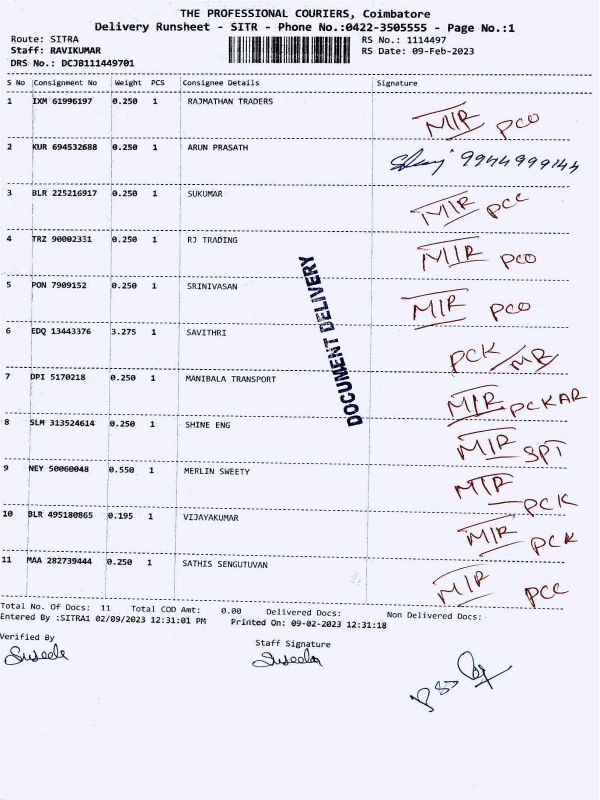 THE PROFESSIONAL COURIERS, Coimbatore
Delivery Runsheet - SITR - Phone No.:0422-3505555 - Page No.:1
Route: SITRA RS No.: 1114497
Staff: RAVIKUMAR RS Date: 09-Feb-2023
DRS No.: DCJB111449701
S No Consignment No Weight PCS Consignee Details Signature
1 IXM 61996197 0.250 1 RAJMATHAN TRADERS
MIR PCO
2 KUR 694532688 0.250 1 ARUN PRASATH
9944999144
3 BLR 225216917 0.250 1 SUKUMAR
MIR PCC
4 TRZ 90002331 0.250 1 RJ TRADING
MIR PCO
5 PON 7909152 0.250 1 SRINIVASAN
MIR PCO
6 EDQ 13443376 3.275 1 SAVITHRI
PCK/MR
7 DPI 5170218 0.250 1 MANIBALA TRANSPORT
MIR PCKAR
8 SLM 313524614 0.250 1 SHINE ENG
MIR SPT
9 NEY 50060048 0.550 1 MERLIN SWEETY
MIR PCK
10 BLR 495180865 0.195 1 VIJAYAKUMAR
MIR PCK
11 MAA 282739444 0.250 1 SATHIS SENGUTUVAN
MIR PCC
DOCUMENT DELIVERY
Total No. Of Docs: 11 Total COD Amt: 0.00 Delivered Docs: Non Delivered Docs:
Entered By :SITRA1 02/09/2023 12:31:01 PM Printed On: 09-02-2023 12:31:18
Verified By Staff Signature